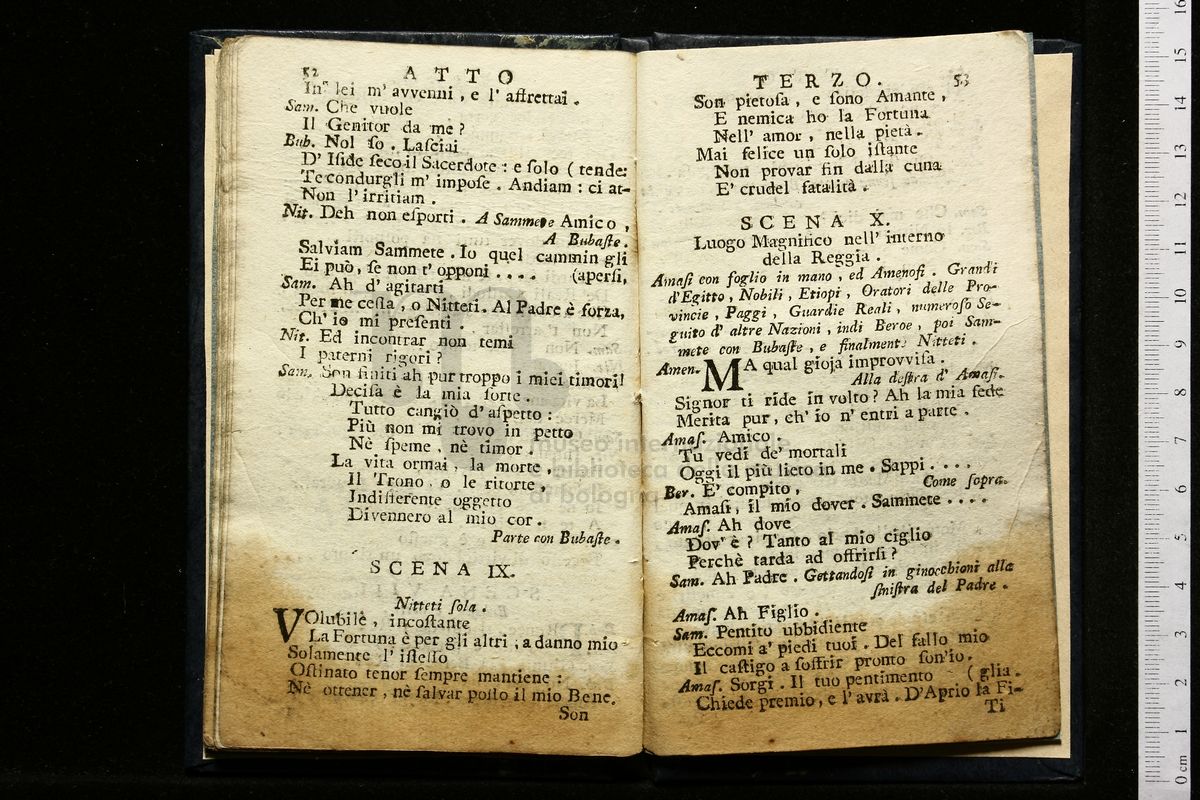 52 ATTO
In lei m' avvenni, e l' affrettai.
Sam. Che vuole
Il Genitor da me?
Bub. Nol so. Lasciai
D' Iside seco il Sacerdote: e solo (tende:
Te condurgli m' impose. Andiam: ci at-
Non l' irritiam.
Nit. Deh non esporti. A Sammete Amico,
A Bubaste.
Salviam Sammete. Io quel cammin gli
Ei può, se non t' opponi .... (apersi,
Sam. Ah d' agitarti
Per me cessa, o Nitteti. Al Padre è forza,
Ch' io mi presenti.
Nit. Ed incontrar non temi
I paterni rigori?
Sam. Son finiti ah pur troppo i miei timori!
Decisa è la mia sorte.
Tutto cangiò d' aspetto:
Più non mi trovo in petto
Nè speme, nè timor.
La vita ormai, la morte,
Il Trono, o le ritorte,
Indifferente oggetto
Divennero al mio cor.
Parte con Bubaste.
SCENA IX.
Nitteti sola.
VOlubile, incostante
La Fortuna è per gli altri, a danno mio
Solamente l' istesso
Ostinato tenor sempre mantiene:
Nè ottener, nè salvar posso il mio Bene.
Son
TERZO. 53
Son pietosa, e sono Amante,
E nemica ho la Fortuna
Nell' amor, nella pietà.
Mai felice un solo istante
Non provar fin dalla cuna
E' crudel fatalità.
SCENA X.
Luogo Magnifico nell' interno
della Reggia.
Amasi con foglio in mano, ed Amenofi. Grandi
d' Egitto, Nobili, Etiopi, Oratori delle Pro-
vincie, Paggi, Guardie Reali, numeroso Se-
guito d' altre Nazioni, indi Beroe, poi Sam-
mete con Bubaste, e finalmente Nitteti.
Amen. MA qual gioja improvvisa.
Alla destra d' Amasi.
Signor ti ride in volto? Ah la mia fede
Merita pur, ch' io n' entri a parte.
Amas. Amico.
Tu vedi de' mortali
Oggi il più lieto in me. Sappi....
Come sopra.
Ber. E' compito,
Amasi, il mio dover. Sammete ....
Amas. Ah dove
Dov' è? Tanto al mio ciglio
Perchè tarda ad offrirsi?
Sam. Ah Padre. Gettandosi in ginocchioni alla
sinistra del Padre.
Amas. Ah Figlio.
Sam. Pentito ubbidiente
Eccomi a' piedi tuoi. Del fallo mio
Il castigo a soffrir pronto son'io.
Amas. Sorgi. Il tuo pentimento (glia.
Chiede premio, e l' avrà. D'Aprio la Fi-
Ti
museo internazionale
biblioteca
di bologna
0 cm 1 2 3 4 5 6 7 8 9 10 11 12 13 14 15 16